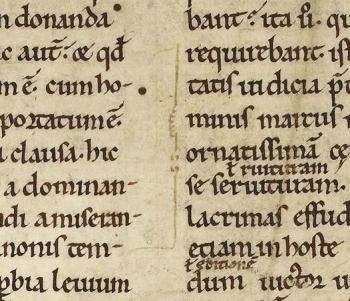 n donanda
ic aut̄: œ qđ
m ē. cum ho-
portatum ē.
a clausa. hic
a dominan-
ndi a miseran-
nonis tem-
ꝑbia leuium
bant: ita ů. qu
requirebant. ist
tatis iudicia p̄t
minis marcus m
ornatissimā
ł ruituram
se seruituram.
lacrimas effud
etiam in hoste
ł editionē
dium uictor u